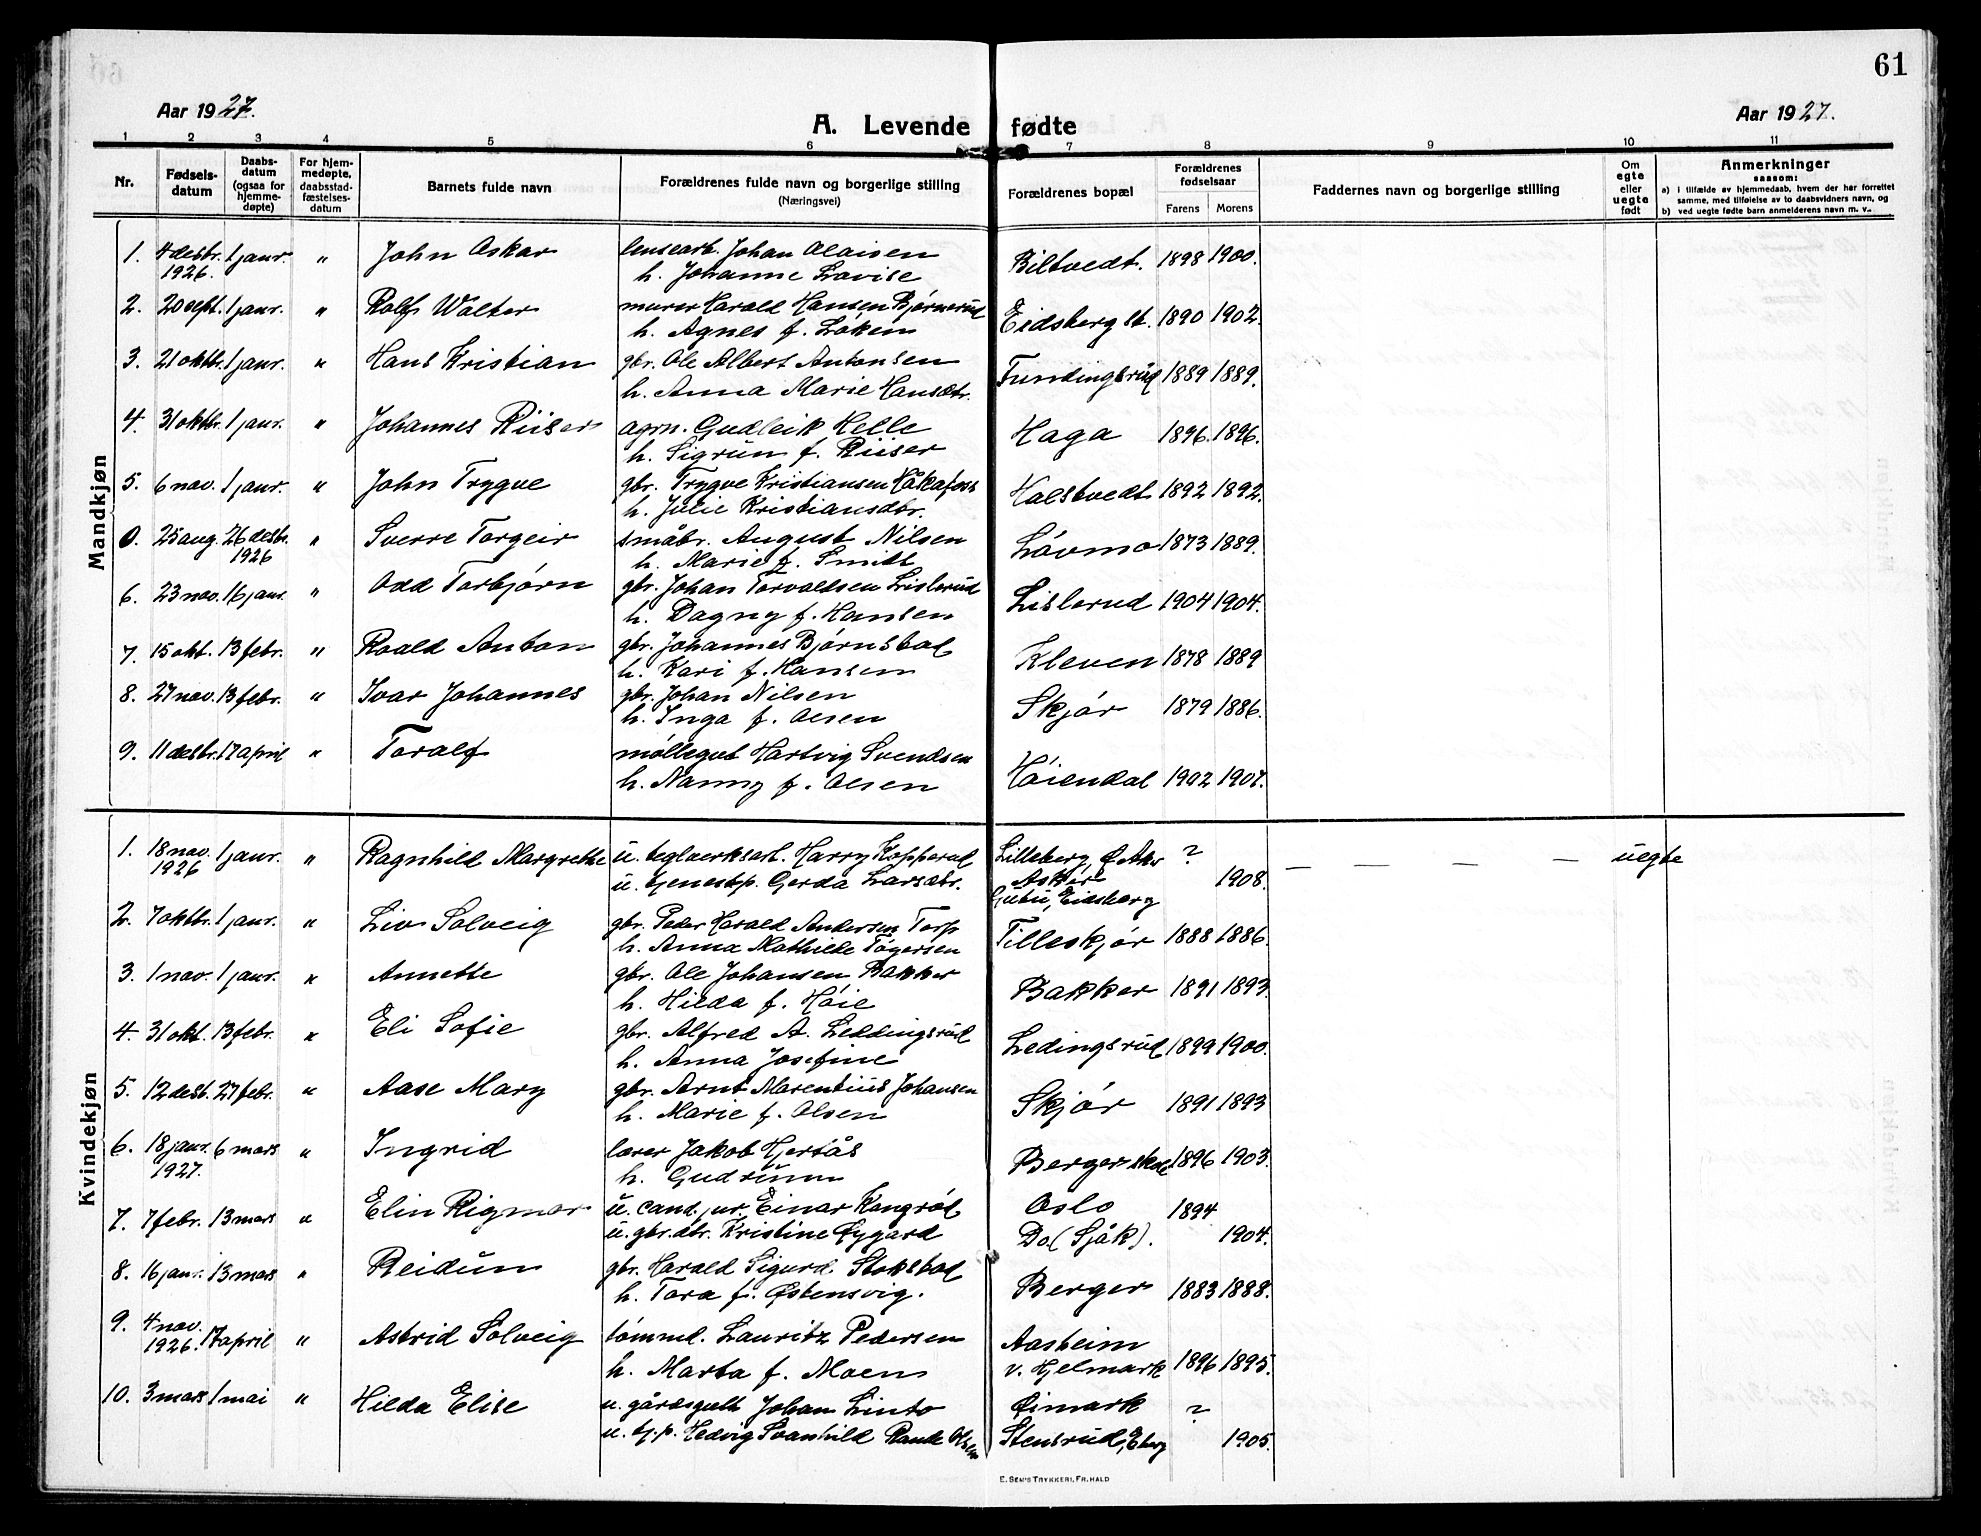 61
Aar 1927.
A. Levende fødte
Aar 1927.
1 2 3 4 5 6 7 8 9 10 11
Nr.
Fødsels-
datum
Daabs-
datum
(ogsaa for
hjemme-
døpte)
For hjem-
medøpte,
daabsstad-
fæstelses-
datum
Barnets fulde navn
Forældrenes fulde navn og borgerlige stilling
(Næringsvei)
Forældrenes bopæl
Forældrenes
fødselsaar
Farens Morens
Faddernes navn og borgerlige stilling
Om
egte
eller
uegte
født
Anmerkninger
saasom:
a) i tilfælde av hjemmedaab, hvem der har forrettet
samme, med tilføielse av to daabsvidners navn, og
b) ved uegte fødte barn anmelderens navn m. v.
Mandkjøn
1. 4 desbr. 1 janr. " John Oskar lensearb. Johan Olaisen Biltvedt. 1898 1900.
1926. h. Johanne Lovise
2. 20 sept. 1 janr. " Rolf Walter murer Harald Hansen Bjørnerud Eidsberg st. 1890 1902.
h. Agnes f. Løken
3. 21 oktbr. 1 janr. " Hans Kristian gbr. Ole Albert Antonsen Tundingsrud 1889 1889.
h. Anna Marie Hansdtr.
4. 31 oktbr. 1 janr. " Johannes Riiser agrn. Gudleik Helle Haga 1896. 1896.
h. Sigrun f. Riiser
5. 6 nov. 1 janr. " John Trygve gbr. Trygve Kristiansen Håkafoss Halstvedt 1892 1892.
h. Julie Kristiansdtr.
0. 25 aug. 26 desbr. " Sverre Torgeir småbr. August Nilsen Lövmo 1873 1889.
1926 h. Marie f. Smitt
6. 23 nov. 16 janr. " Odd Torbjørn gbr. Johan Torvaldsen Lislerud Lislerud 1904 1904.
h. Dagny f. Hansen
7. 15 okt. 13 febr. " Roald Anton gbr. Johannes Bjørnstad Kleven 1878 1889
h. Kari f. Hansen
8. 27 nov. 13 febr. " Ivar Johannes gbr. Johan Nilsen Skjör 1879 1886.
h. Inga f. Olsen
9. 11 desbr. 17 april " Toralf möllegut Hartvig Svendsen Höiendal 1902 1907.
h. Nanny f. Olsen
Kvindekjøn
1. 18 nov. 1 janr. " Ragnhild Margrethe u. teglverksarb. Harry Kopperud Lilleberg, Ø. ?  — — — — uegte
1926 u. tjenestp. Gerda Larsdtr. Askim 1908.
Eidsberg
2. 7 oktbr. 1 janr. " Liv Solveig gbr. Peder Harald Andersen Torp Tilleskjör 1888 1886.
h. Anna Mathilde Tögersen
3. 1 nov. 1 janr. " Annette gbr. Ole Johansen Bakker Bakker 1891 1893.
h. Hilda f. Höie
4. 31 okt. 13 febr. " Eli Sofie gbr. Alfred A. Leddingsrud Ledingsrud 1899 1900.
h. Anna Josefine
5. 12 desb. 27 febr. " Aase Mary gbr. Arnt Marentius Johansen Skjör 1891 1893
h. Marie f. Olsen
6. 18 janr. 6 mars " Ingrid lærer Jakob Hjertås Berger skole 1896 1903.
1927. h. Gudrunn
7. 7 febr. 13 mars " Elin Rigmor u. cand. jur. Einar Kongröd Oslo 1894
u. gbr.dtr. Kristine Øygard Do. (Sjåk). 1904.
8. 16 janr. 13 mars " Reidun gbr. Harald Sigurd. Stokstad Berger 1883 1888.
h. Tora f. Østensvig.
9. 4 nov. 17 april " Astrid Solveig tömmd. Lauritz Pedersen Aasheim
1926. h. Marta f. Moen v. Hjelmark 1896 1895.
10. 3 mars 1 mai " Hilda Elise u. gårdsgutt Johan Linto Øimark ?
u. tj.p. Hedvig Svanhild Rande Olsen Stensrud, Eberg 1905.
E. SEM'S TRYKKERI, FR.HALD